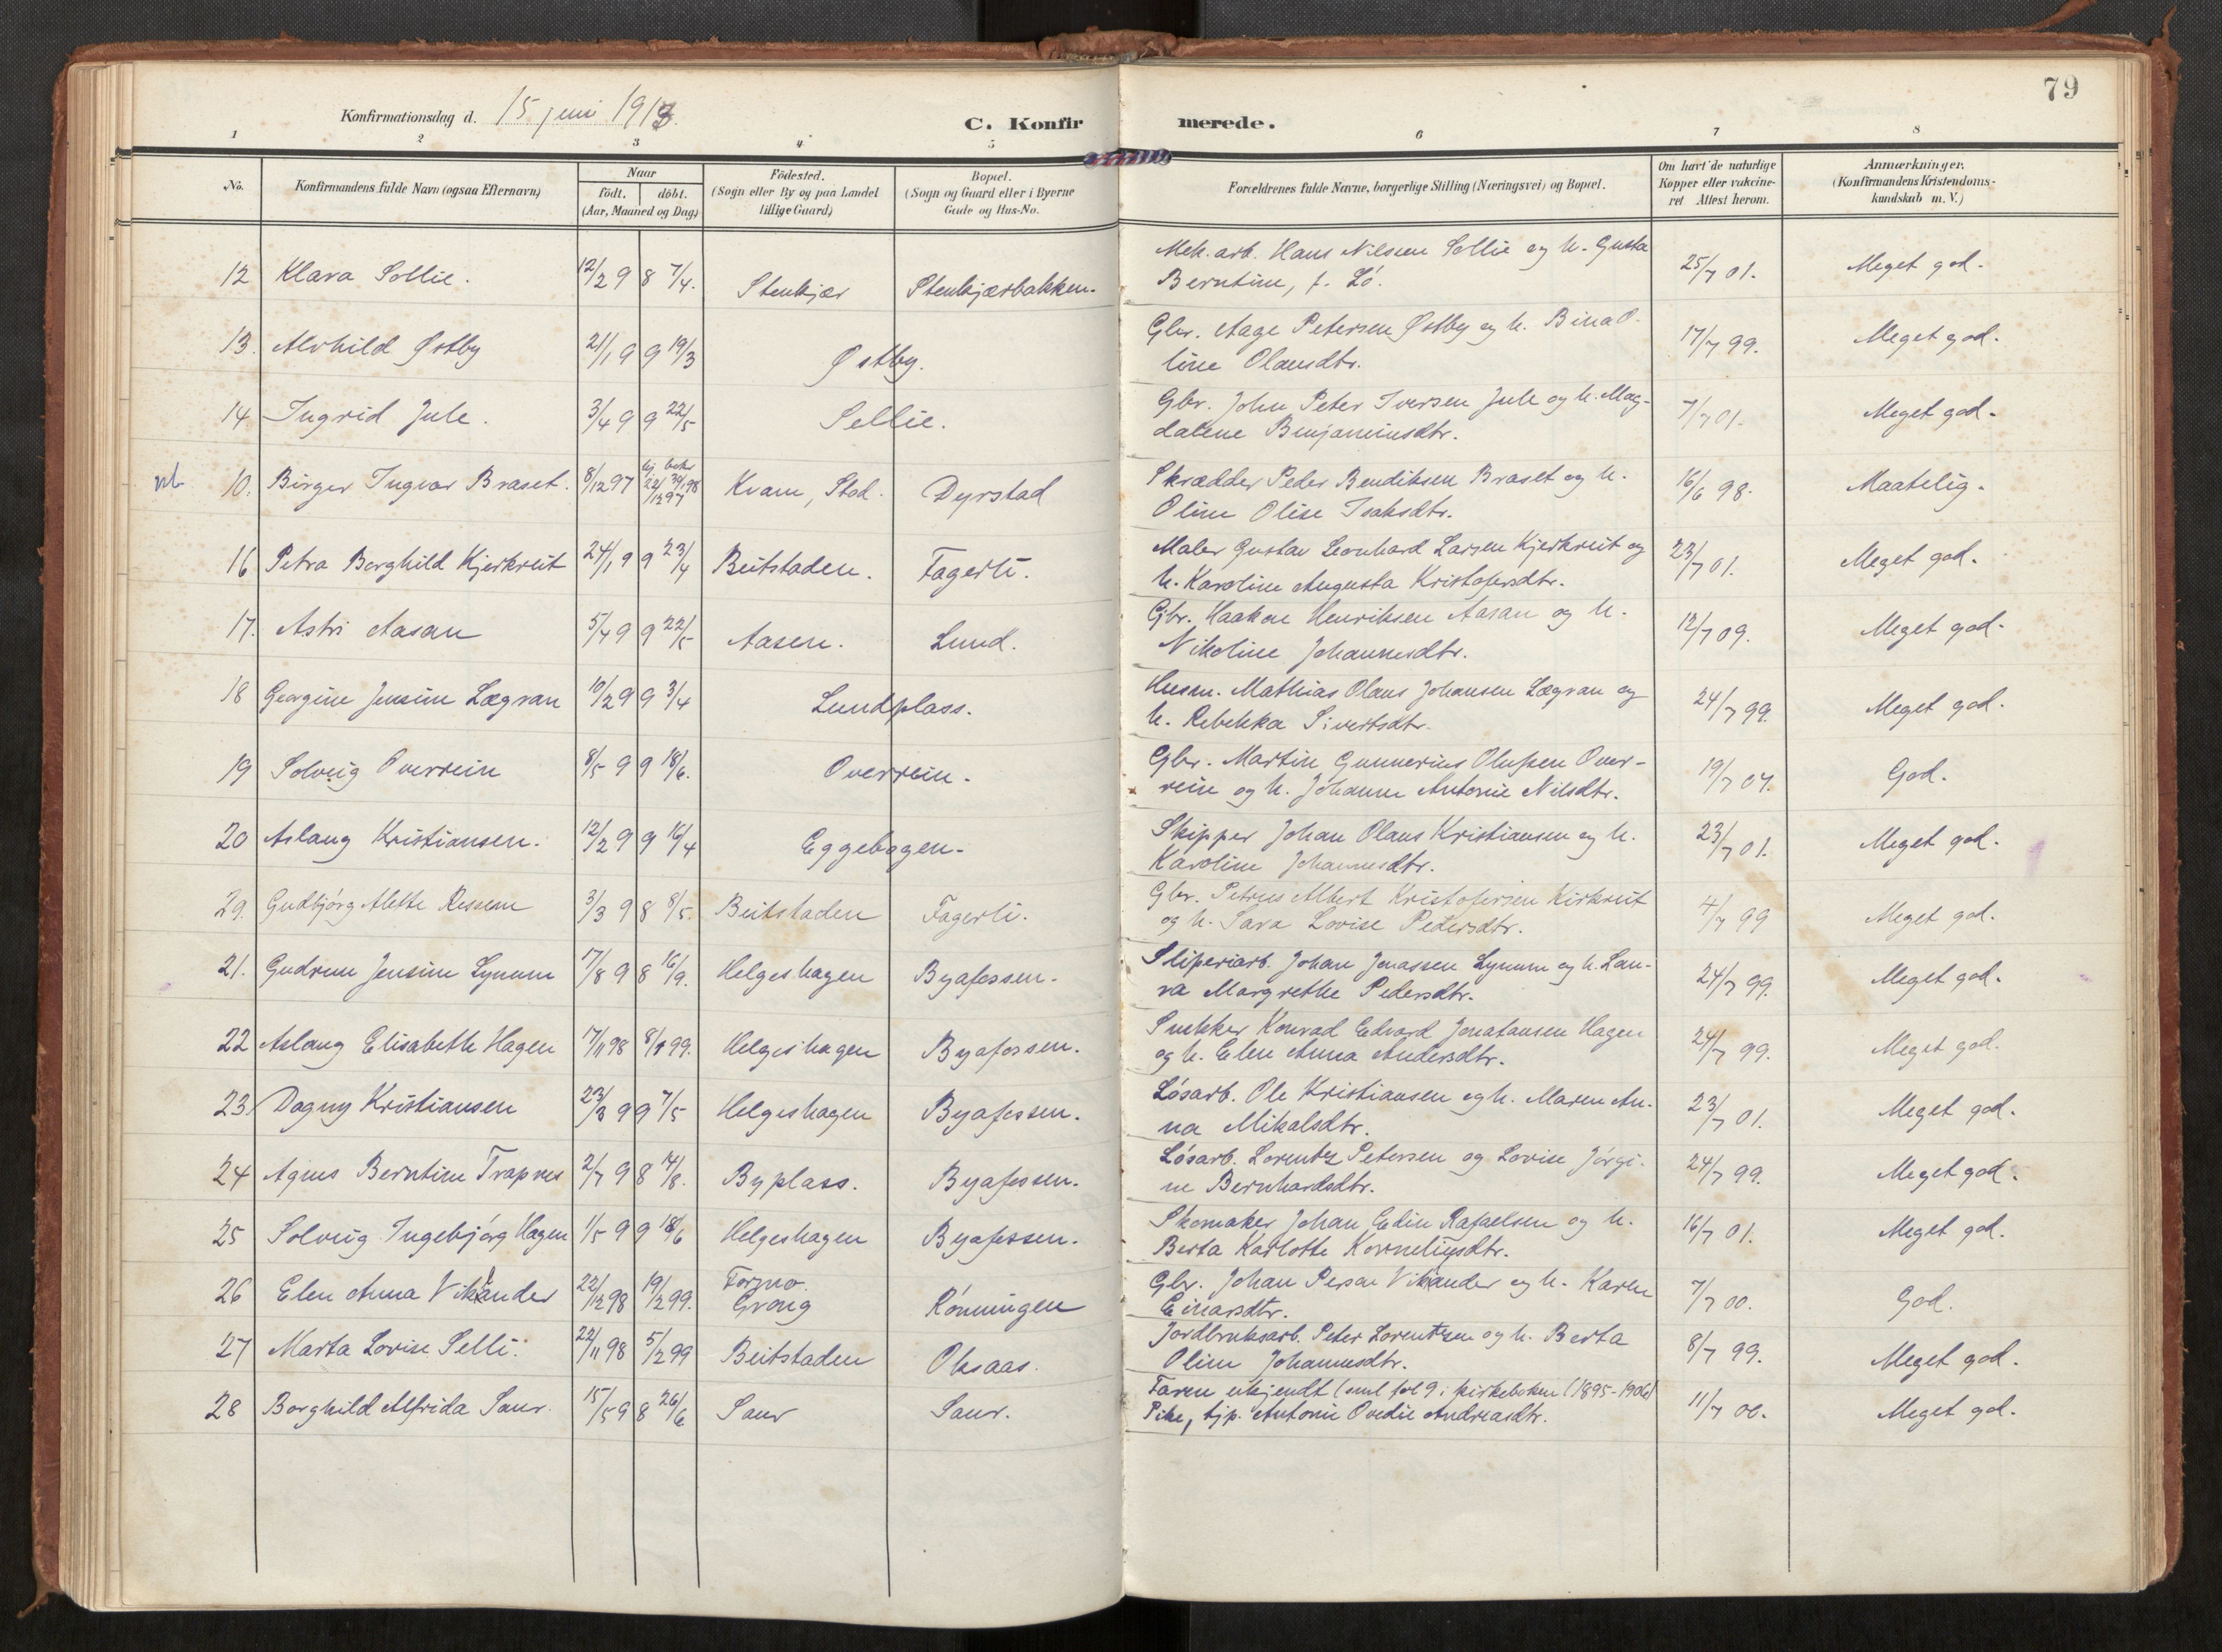 79
Konfirmationsdag d. 15 juni 1913.
C. Konfirmerede.
1 2 3 4 5 6 7 8
No.
Konfirmandens fulde Navn (ogsaa Efternavn)
Naar
födt. döbt.
(Aar, Maaned og Dag)
Födested.
(Sogn eller By og paa Landet
tillige Gaard)
Bopæl.
(Sogn og Gaard eller i Byerne
Gade og Hus-No.
Forældrenes fulde Navne, borgerlige Stilling (Næringsvei) og Bopæl.
Om havt de naturlige
Kopper eller vakcine-
ret Attest herom.
Anmærkninger.
(Konfirmandens Kristendoms-
kundskab m. V.)
12 Klara Sollie. 12/2 98 7/4. Stenkjær Stenkjærbakken. Mek. arb. Hans Nilsen Sollie og h. Gusta
Berntine, f. Lö. 25/7 01. Meget god.
13. Alvhild Østby 21/1 99 19/3 Østby. Gbr. Aage Petersen Østby og h. Bina O-
line Olausdtr. 17/7 99. Meget god.
14 Ingrid Jule. 3/4 99 22/5 Sellie. Gbr. John Peter Iversen Jule og h. Mag-
dalene Benjaminsdtr. 7/7 01. Meget god.
10. Birger Ingvar Braset. 8/12 97 hj. 22/12 97 Kvam, Stod. Dyrstad Skrædder Peder Bendiksen Braset og h.
Oline Olise Isaksdtr. 16/6 98. Maatelig.
16 Petra Borghild Kjerkreit 24/1 99 23/4 Beitstaden. Fagerli. Maler Gustav Leonhard Larsen Kjerkreit og
h. Karoline Augusta Kristofersdtr. 23/7 01. Meget god.
17. Astri Aasan 5/4 99 22/5 Aasen. Lund. Gbr. Haakon Henriksen Aasan og h.
Nikoline Johannesdtr. 12/7 09. Meget god.
18 Georgine Jensine Lægran 10/2 99 3/4 Lundplass. Husm. Mathias Olaus Johansen Lægran og
h. Rebekka Sivertsdtr. 24/7 99. Meget god.
19 Solveig Overrein 8/5 99 18/6. Overrein. Gbr. Martin Gunnerius Olufsen Over-
rein og h. Johanne Antonie Nilsdtr. 19/7 07. God.
20 Aslaug Kristiansen. 12/2 99 16/4 Eggebogen. Skipper Johan Olaus Kristiansen og h.
Karoline Johannesdtr. 23/7 01. Meget god.
29. Gudbjörg Alette Ressem 3/3 98 8/5. Beitstaden Fagerli. Gbr. Petrus Albert Kristofersen Kirkreit
og h. Sara Lovise Pedersdtr. 4/7 99 Meget god.
21. Gudrun Jensine Lynum 17/8 98 16/9. Helgeshagen Byafossen. Sliperiarb. Johan Jonassen Lynum og h. Lau-
ra Margrethe Pedersdtr. 24/7 99. Meget god.
22 Aslaug Elisabeth Hagen 17/11 98 8/1 99. Helgeshagen Byafossen. Snekker Konrad Edvard Jonatansen Hagen
og h. Elen Anna Andersdtr. 24/7 99. Meget god.
23 Dagny Kristiansen 23/3 99 7/5 Helgeshagen Byafossen. Lösarb. Ole Kristiansen og h. Maren An-
na Mikalsdtr. 23/7 01. Meget god.
24 Agnes Berntine Trapnes 2/7 98 14/8. Byplass. Byafossen. Lösarb. Lorents Petersen og Lovise Jörgi-
ne Bernhardsdtr. 24/7 99. Meget god.
25 Solveig Ingebjörg Hagen 1/5 99 18/6 Helgeshagen Byafossen. Skomaker Johan Edin Rafaelsen og h.
Berta Karlotte Korneliusdtr. 16/7 01. Meget god.
26 Elen Anna Vikander 22/12 98 19/2 99. Formo.
Grong Rönningen Gbr. Johan Person Vikander og h. Karen
Einarsdtr. 7/7 00. God.
27 Marta Lovise Selli. 22/11 98 5/2 99 Beitstaden Oksaas. Jordbruksarb. Peter Lorentsen og h. Berta
Oline Johannesdtr. 8/7 99. Meget god.
28 Borghild Alfrida Saur. 15/5 98 26/6 Saur Saur. Faren ukjendt ( fol 9 i kirkeboken (1895-1906)
Pike, tjp. Antonie Ovedie Andreasdtr. 11/7 00. Meget god.